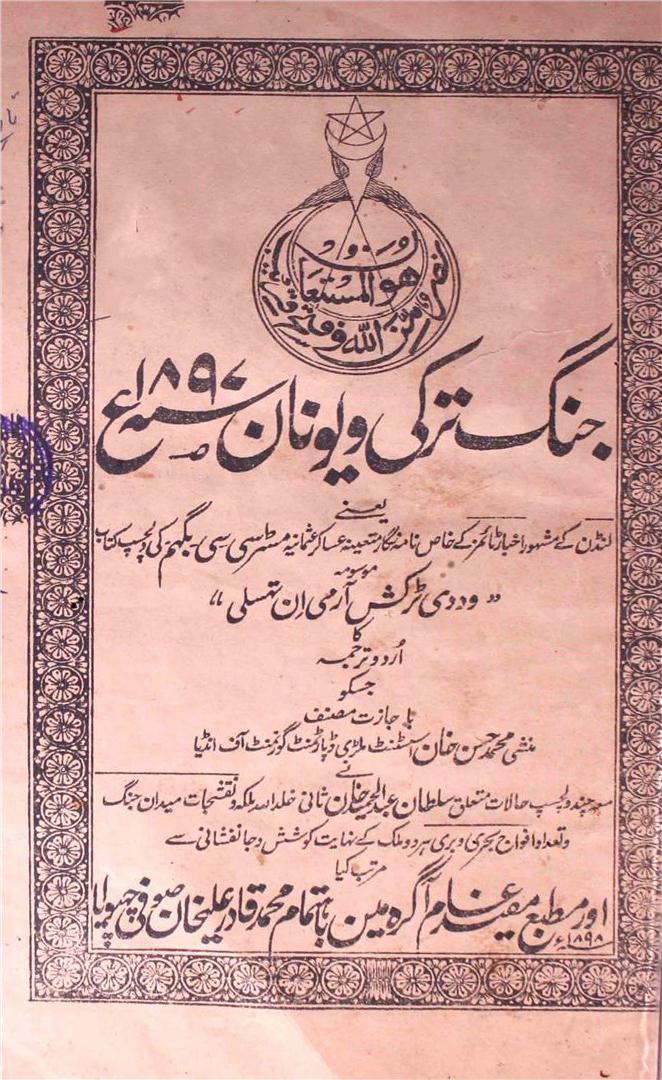 ھو المستعان
نصر من اللہ وفتح قریب
جنگ ترکی ویونان سنہ ۱۸۹۷ء
یعنے
لنڈن کے مشہور اخبار ٹائمز کے خاص نامہ نگار متعینہ عساکر عثمانیہ مسٹر سی سی بگہم کی دلچسپ کتاب
موسومہ
”ود دی ٹرکش آرمی ان تہسلی“
کا
اُردو ترجمہ
جسکو
باجازت مصنف
منشی محمد حسن خان اسسٹنٹ ملٹری ڈپارٹمنٹ گورنمنٹ آف انڈیا
نے
معہ چند دلچسپ حالات متعلق سلطان عبد الحمید خان ثانی خلد اللہ ملکہ و نقشجات میدان جنگ
و تعداد افواج بحری و بری ہر دو ملک کے نہایت کوشش و جانفشانی سے
مرتب کیا
اور مطبع مفید عام آگرہ مین باہتمام محمد قادر علیخان صوفی چھپوایا
۱۸۹۸ء